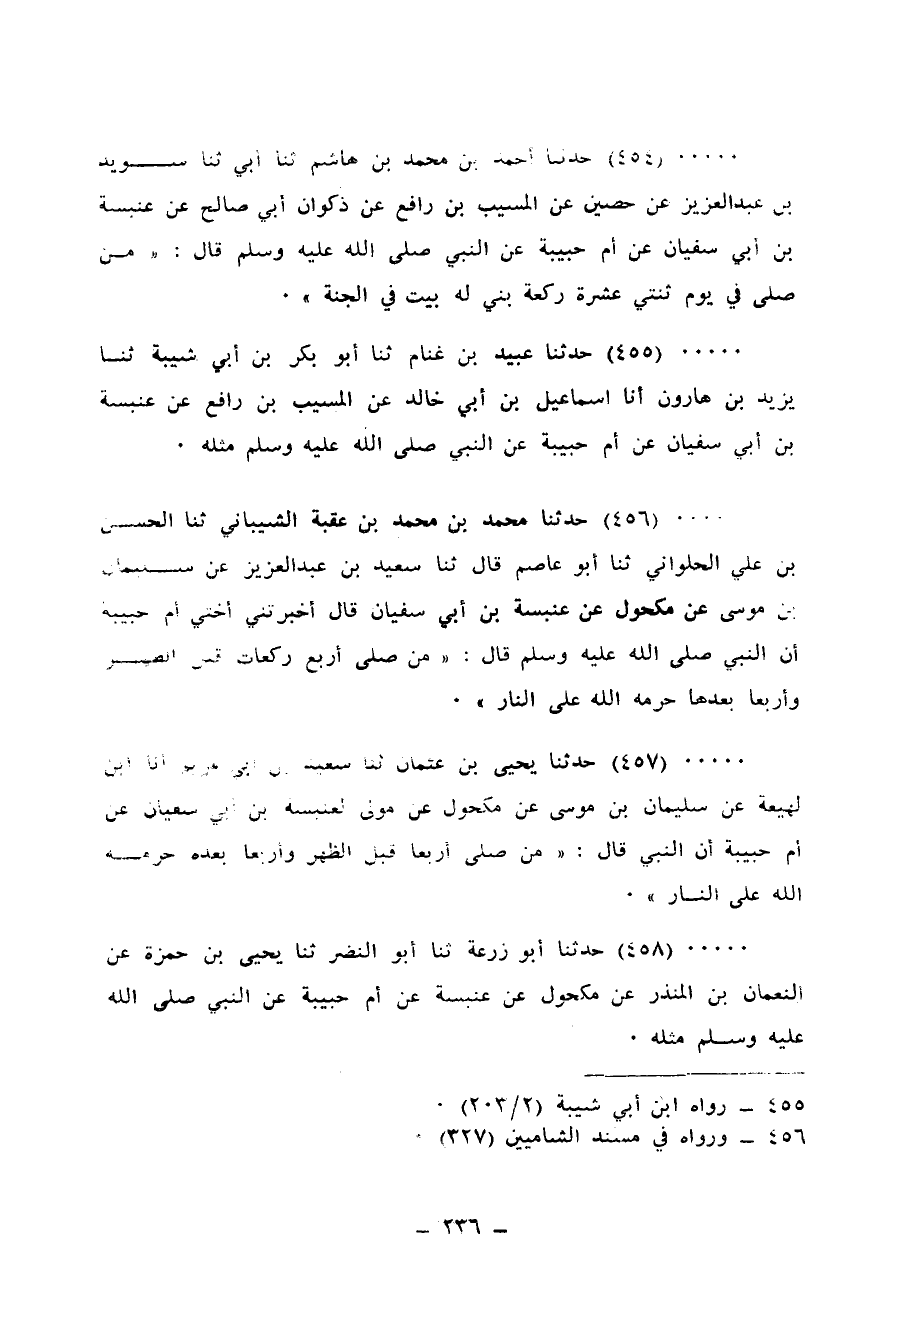 ٠٠٠٠٠ (٤٥٤) حدثنا أحمد بن محمد بن هاشم ثنا أبي ثنا ســـويد
بن عبدالعزيز عن حصين عن المسيب بن رافع عن ذكوان أبي صالح عن عنبسة
بن أبي سفيان عن أم حبيبة عن النبي صلى الله عليه وسلم قال : « مــن
صلى في يوم ثنتي عشرة ركعة بني له بيت في الجنة » ٠
٠٠٠٠٠ (٤٥٥) حدثنا عبيد بن غنام ثنا أبو بكر بن أبي شيبة ثنــا
يزيد بن هارون أنا اسماعيل بن أبي خالد عن المسيب بن رافع عن عنبسة
بن أبي سفيان عن أم حبيبة عن النبي صلى الله عليه وسلم مثله ٠
٠٠٠٠ (٤٥٦) حدثنا محمد بن محمد بن عقبة الشيباني ثنا الحســن
بن علي الحلواني ثنا أبو عاصم قال ثنا سعيد بن عبدالعزيز عن ســليمان
بن موسى عن مكحول عن عنبسة بن أبي سفيان قال أخبرتني أختي أم حبيبة
أن النبي صلى الله عليه وسلم قال : « من صلى أربع ركعات قبل الظهــر
وأربعا بعدها حرمه الله على النار » ٠
٠٠٠٠٠ (٤٥٧) حدثنا يحيى بن عثمان ثنا سعيد بن أبي مريم أنا ابن
لهيعة عن سليمان بن موسى عن مكحول عن مولى لعنبسة بن أبي سفيان عن
أم حبيبة أن النبي قال : « من صلى أربعا قبل الظهر وأربعا بعده حرمــه
الله على النــار » ٠
٠٠٠٠٠ (٤٥٨) حدثنا أبو زرعة ثنا أبو النضر ثنا يحيى بن حمزة عن
النعمان بن المنذر عن مكحول عن عنبسة عن أم حبيبة عن النبي صلى الله
عليه وســلم مثله ٠
٤٥٥ ــ رواه ابن أبي شيبة (٢٠٣/٢) ٠
٤٥٦ ــ ورواه في مسند الشاميين (٣٢٧) ٠
ــ ٢٣٦ ــ